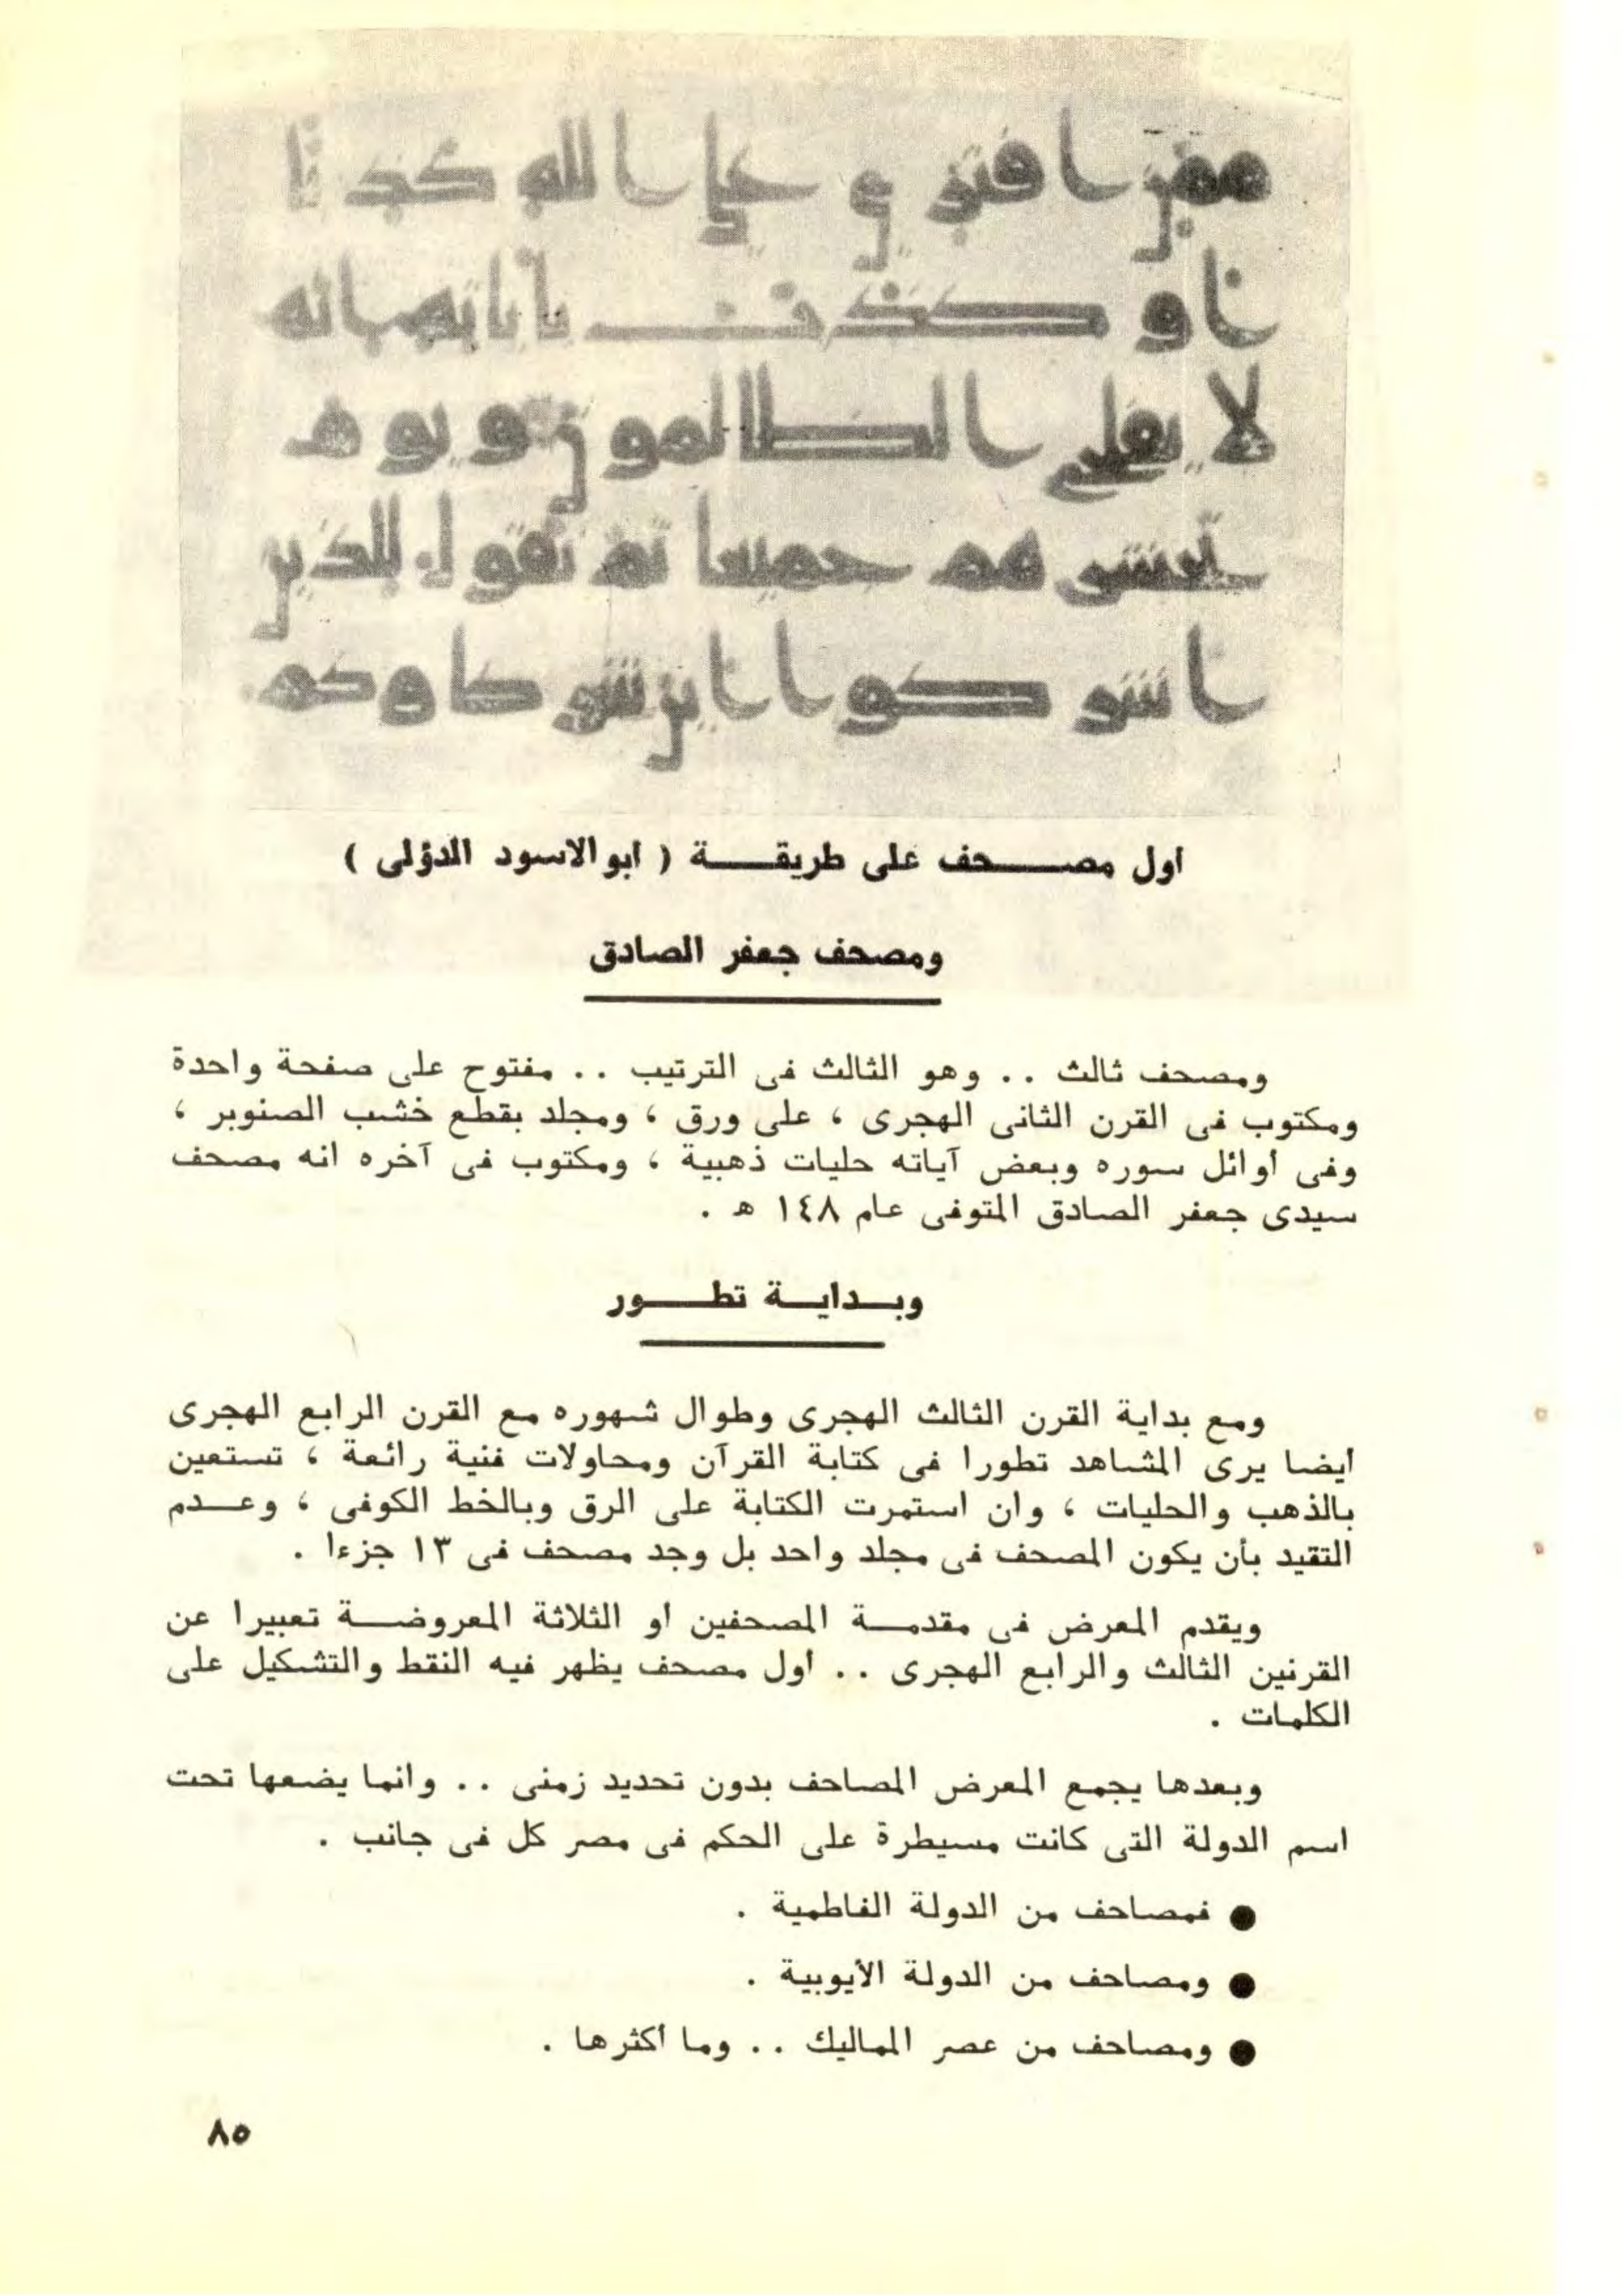 ممن افترى على الله كذبا
او كذب باياته انه
لا يفلح الظالمون ويوم
نحشرهم جميعا ثم نقول للذين
اشركوا اين شركاؤكم
أول مصحف على طريقة ( ابو الاسود الدؤلى )
ومصحف جعفر الصادق
ومصحف ثالث .. وهو الثالث فى الترتيب .. مفتوح على صفحة واحدة
ومكتوب فى القرن الثانى الهجرى ، على ورق ، ومجلد بقطع خشب الصنوبر ،
وفى أوائل سوره وبعض آياته حليات ذهبية ، ومكتوب فى آخره انه مصحف
سيدى جعفر الصادق المتوفى عام ١٤٨ هـ .
وبداية تطور
ومع بداية القرن الثالث الهجرى وطوال شهوره مع القرن الرابع الهجرى
أيضا يرى المشاهد تطورا فى كتابة القرآن ومحاولات فنية رائعة ، تستعين
بالذهب والحليات ، وان استمرت الكتابة على الرق وبالخط الكوفى ، وعدم
التقيد بأن يكون المصحف فى مجلد واحد بل وجد مصحف فى ١٣ جزءا .
ويقدم المعرض فى مقدمة المصحفين او الثلاثة المعروضة تعبيرا عن
القرنين الثالث والرابع الهجرى .. أول مصحف يظهر فيه النقط والتشكيل على
الكلمات .
وبعدها يجمع المعرض المصاحف بدون تحديد زمنى .. وانما يضعها تحت
اسم الدولة التى كانت مسيطرة على الحكم فى مصر كل فى جانب .
● فمصاحف من الدولة الفاطمية .
● ومصاحف من الدولة الأيوبية .
● ومصاحف من عصر المماليك .. وما أكثرها .
٨٥